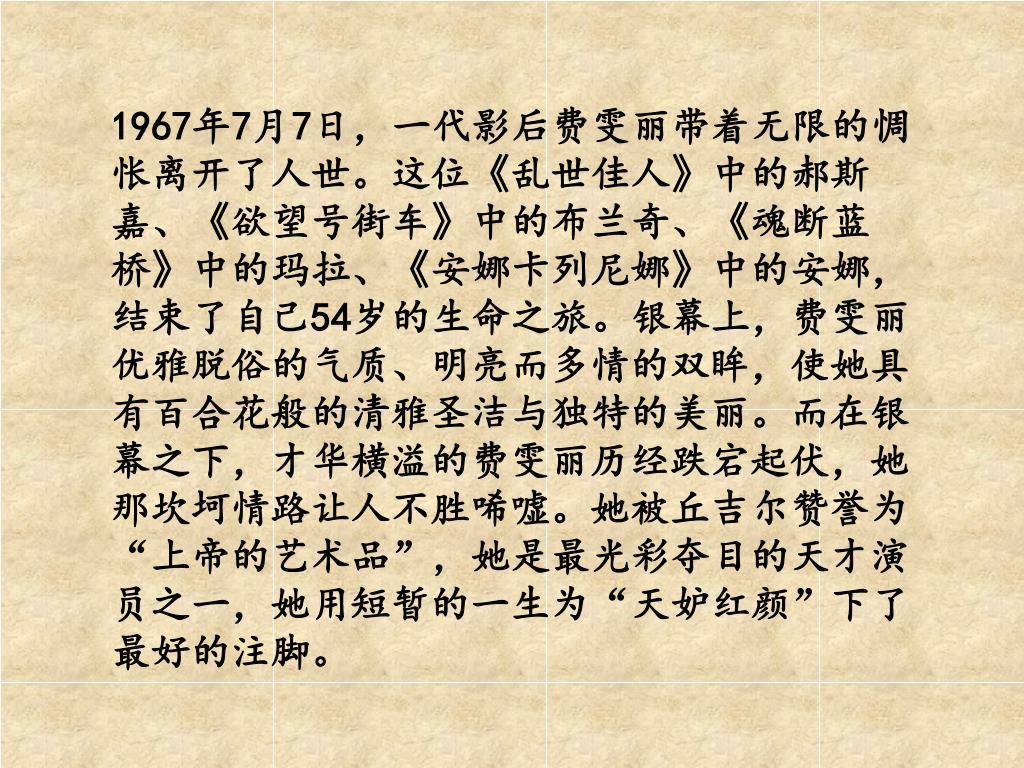 1967年7月7日，一代影后费雯丽带着无限的惆
怅离开了人世。这位《乱世佳人》中的郝斯
嘉、《欲望号街车》中的布兰奇、《魂断蓝
桥》中的玛拉、《安娜卡列尼娜》中的安娜，
结束了自己54岁的生命之旅。银幕上，费雯丽
优雅脱俗的气质、明亮而多情的双眸，使她具
有百合花般的清雅圣洁与独特的美丽。而在银
幕之下，才华横溢的费雯丽历经跌宕起伏，她
那坎坷情路让人不胜唏嘘。她被丘吉尔赞誉为
“上帝的艺术品”，她是最光彩夺目的天才演
员之一，她用短暂的一生为“天妒红颜”下了
最好的注脚。